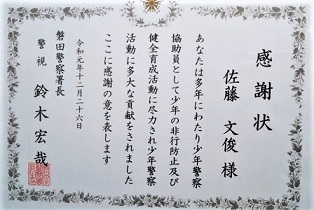 感謝状
佐藤 文俊 様
あなたは多年にわたり少年警察
協助員として少年の非行防止及び
健全育成活動に尽力され少年警察
活動に多大な貢献をされました
ここに感謝の意を表します
令和元年十二月二十六日
磐田警察署長
警視 鈴木宏哉